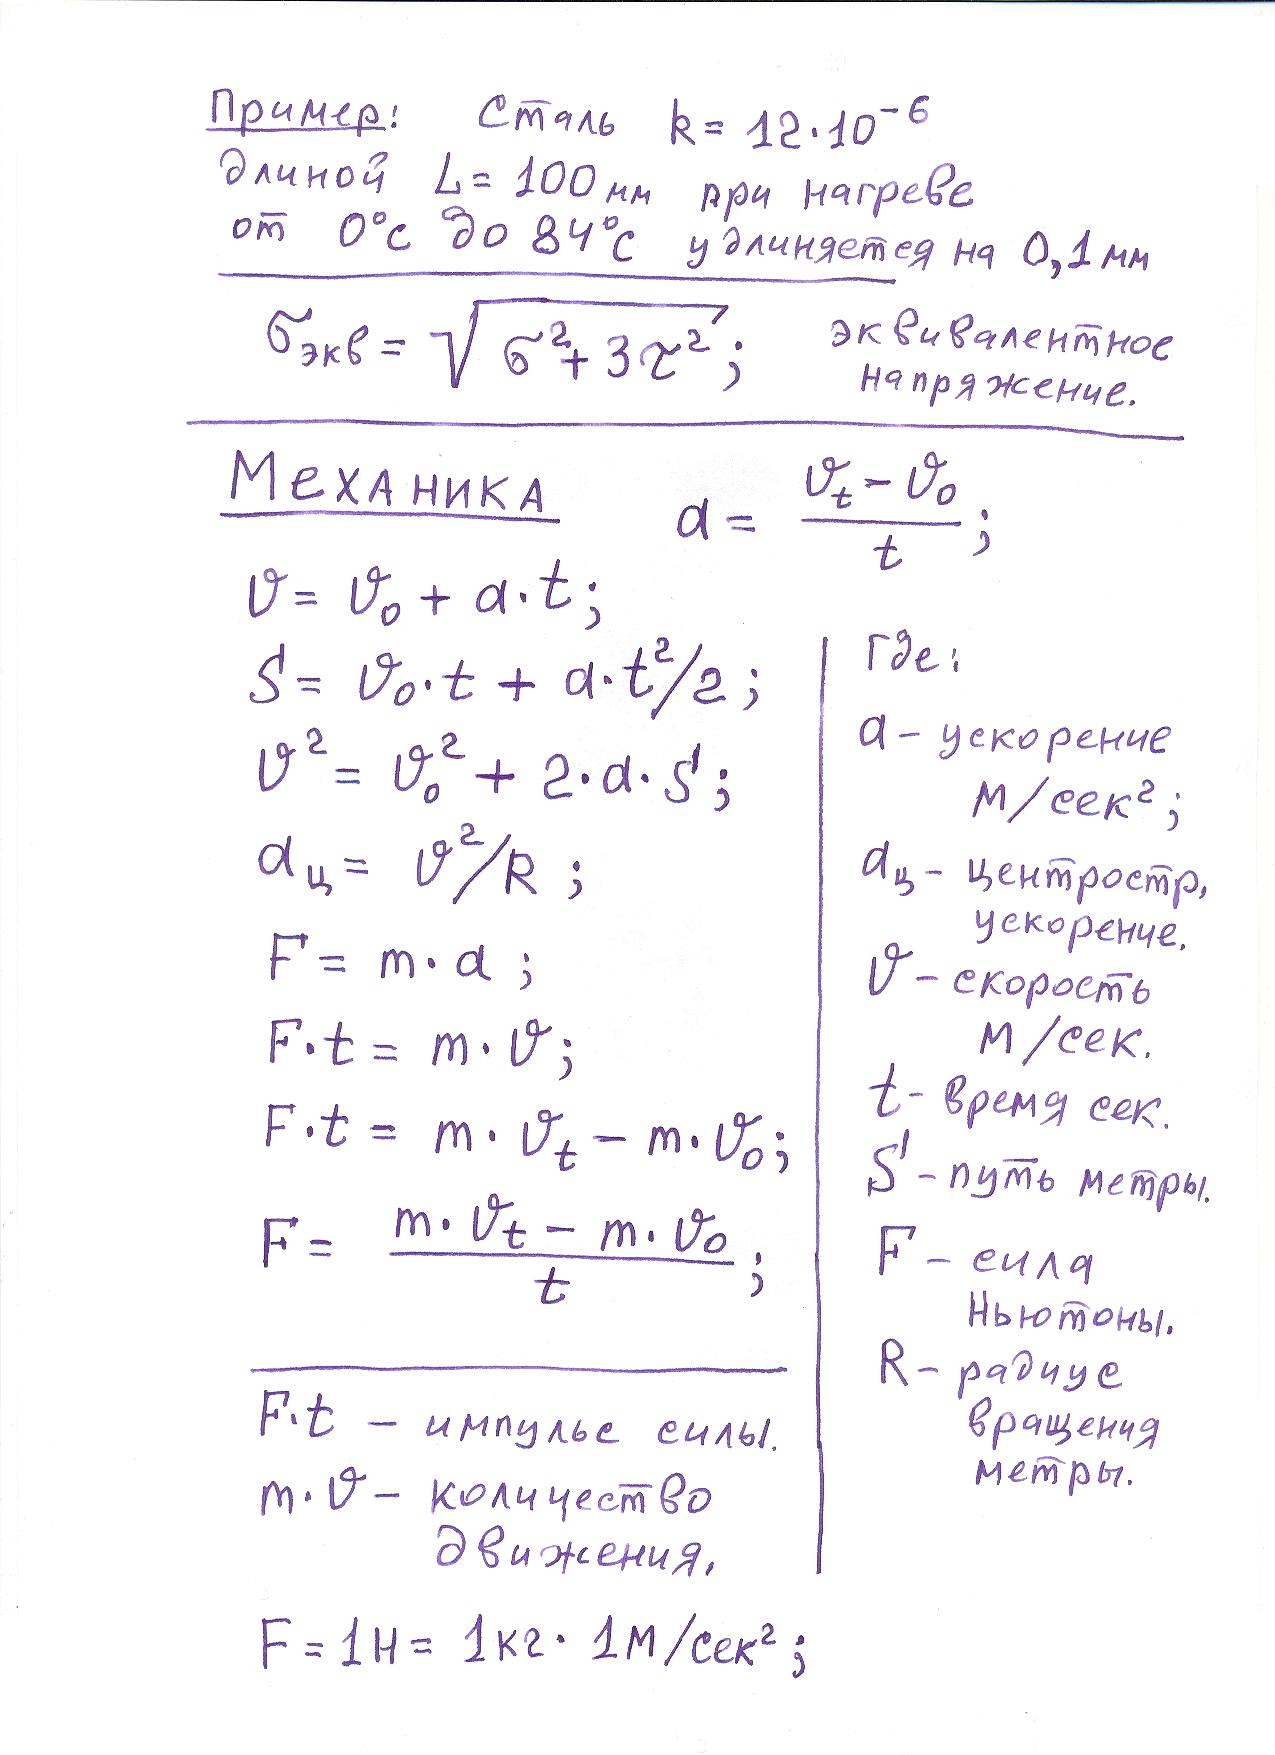 Пример: Сталь k = 12·10⁻⁶
длиной L = 100 мм при нагреве
от 0°с до 84°с удлиняется на 0,1 мм
σэкв = √(σ² + 3τ²); эквивалентное
напряжение.
Механика a = (υₜ – υ₀)/t;
υ = υ₀ + a·t;
S = υ₀·t + a·t²/2;
υ² = υ₀² + 2·a·S;
aц = υ²/R;
F = m·a;
F·t = m·υ;
F·t = m·υₜ – m·υ₀;
F = (m·υₜ – m·υ₀)/t;
F·t – импульс силы.
m·υ – количество
движения,
Где:
a – ускорение
м/сек²;
aц – центростр,
ускорение.
υ – скорость
м/сек.
t – время сек.
S – путь метры.
F – сила
Ньютоны.
R – радиус
вращения
метры.
F = 1Н = 1кг · 1м/сек²;